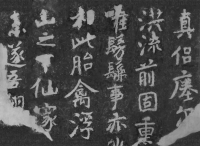 真侶瘞
洪流前固重
唯髣髴事亦
相此胎禽浮
山之下仙家
未遂吾翔